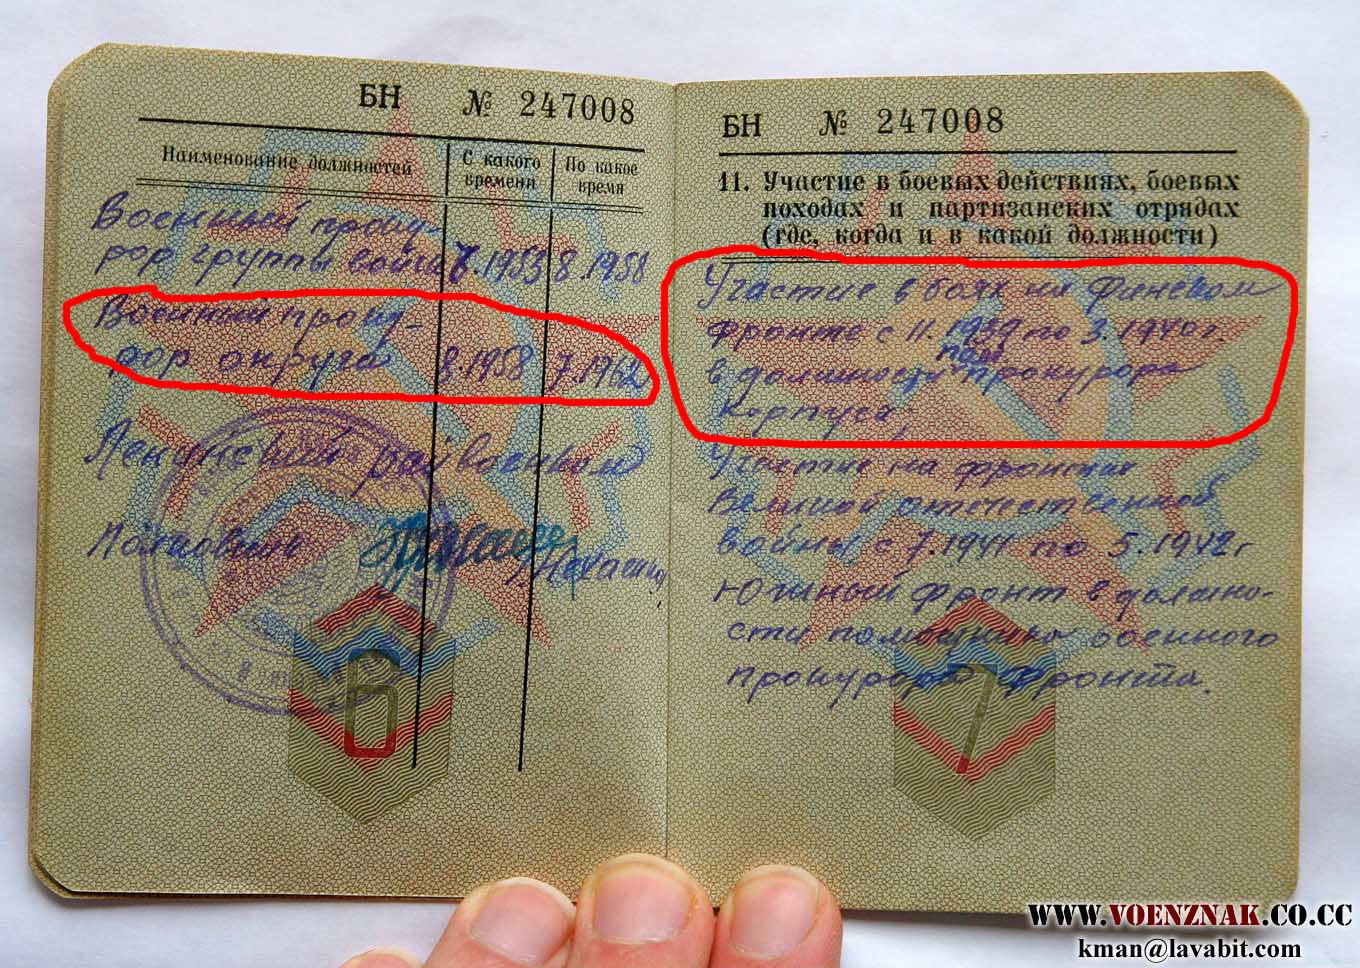 БН № 247008
Наименование должностей
С какого времени
По какое время
Военный проку-
рор группы войск 7.1953 8.1958
Военный проку-
рор округа 8.1958 7.1962
Ленинский райвоенком
Полковник
6
БН № 247008
11. Участие в боевых действиях, боевых
походах и партизанских отрядах
(где, когда и в какой должности)
Участие в боях на Финском
фронте с 11.1939 по 3.1940 г.
пом.
в должности прокурора
корпуса.
Участие на фронтах
Великой отечественной
войны с 7.1941 по 5.1942 г
Южный фронт в должно-
сти помощника военного
прокурора Фронта.
7
WWW.VOENZNAK.CO.CC
kman@lavabit.com